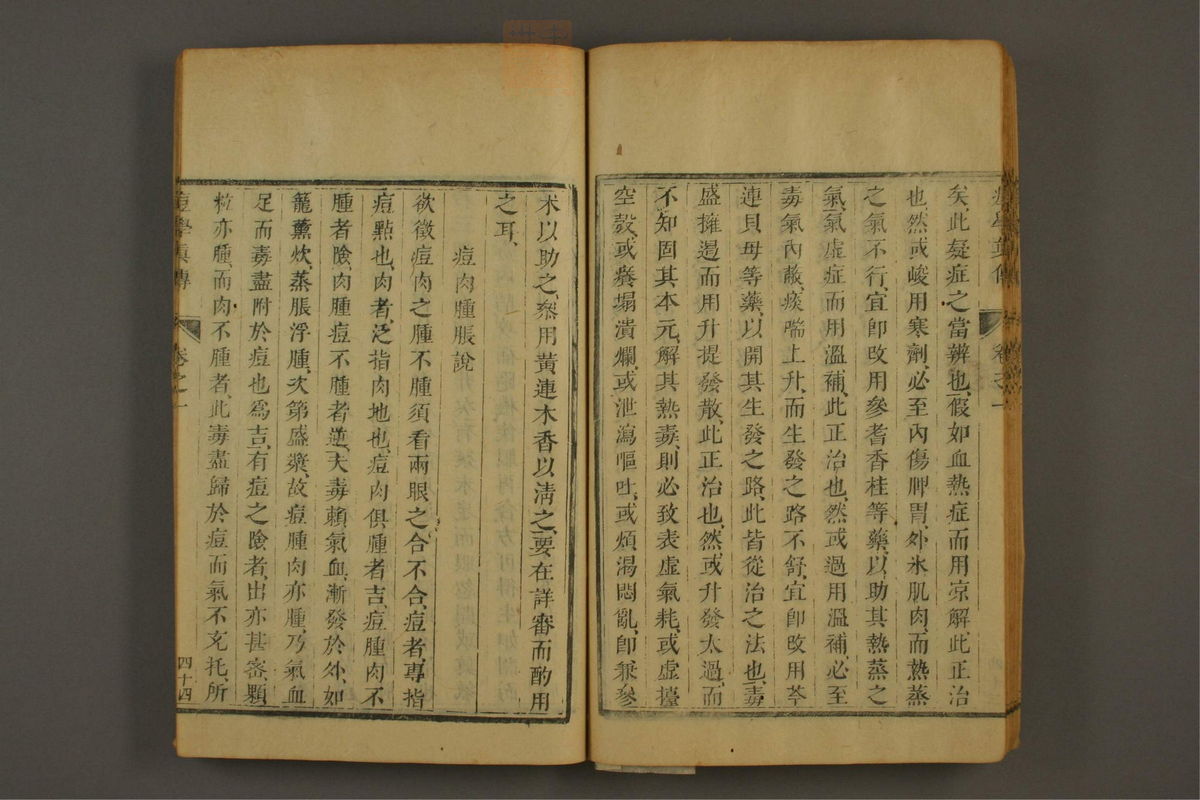 矣、此疑症之當辨也、假如血熱症而用凉解此正治
也、然或峻用寒劑、必至內傷脾胃、外氷肌肉、而熱蒸
之氣不行、宜卽改用參耆香桂等藥、以助其熱蒸之
氣、氣虛症而用溫補、此正治也、然或過用溫補、必至
毒氣內蔽、痰喘上升、而生發之路不舒、宜卽改用芩
連貝母等藥、以開其生發之路、此皆從治之法也、毒
盛擁遏而用升提發散、此正治也、然或升發太過、而
不知固其本元、解其熱毒、則必致表虛氣耗、或虛擡
空殼、或癢塌潰爛、或泄瀉嘔吐、或煩渴悶亂、卽兼參
痘學眞傳 卷之一
朮以助之、叅用黃連木香以淸之、要在詳審而酌用
之耳、
痘肉腫脹說
欲徵痘肉之腫不腫須看兩眼之合不合、痘者、專指
痘點也、肉者、泛指肉地也、痘肉俱腫者吉、痘腫肉不
腫者險、肉腫痘不腫者逆、夫毒賴氣血、漸發於外、如
籠薰炊、蒸脹浮腫、次第盛漿、故痘腫肉亦腫、乃氣血
足而毒盡附於痘也爲吉、有痘之險者、出亦甚密、顆
粒亦腫、而肉不腫者、此毒盡歸於痘而氣不充托、所
痘學眞傳 卷之一 四十四